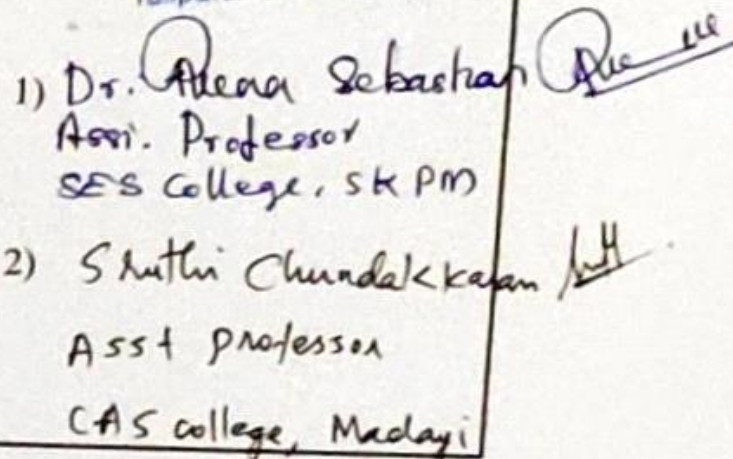 1) Dr. Sebastian
Assi. Professor
SES College, SKPM
2) Sruthi Chundakkaran
Asst professor
CAS college, Madayi